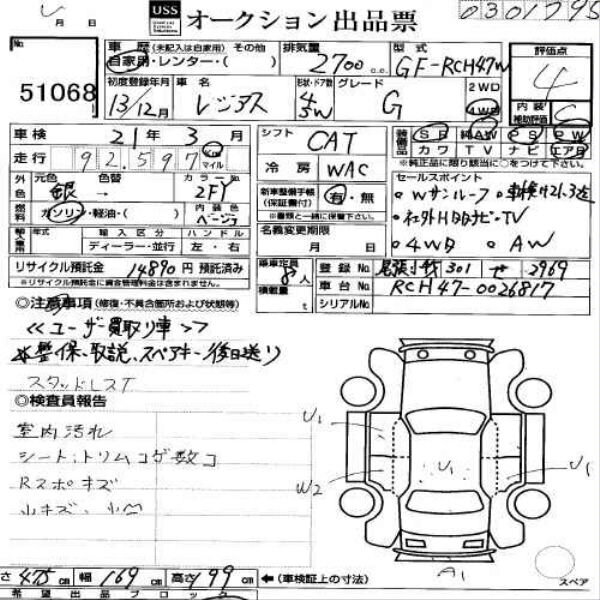 USS オークション 出品票
0301795
月 日
No. 51068
車歴 (未記入は自家用) その他
自家用・レンター・( )
排気量 2700 c.c.
型式 GF-RCH47W
評価点 4
初度登録年月 13/12月
車名 レジアス
形状・ドア数 4/5W
グレード G
2WD
4WD
内装補助評価 C
車検 21年 3月
走行 92,597 Km マイル
シフト CAT
冷房 WAC
装備品 SR 純AW PS PW
カワ TV ナビ エアB
※純正品に限り該当に○をつけて下さい。
外色 元色 銀 → 色替
カラーNo 2FY
燃料 ガソリン・軽油・( )
内装色 ベージュ
新車整備手帳(保証書付) 有・無
※書類と一緒に保管下さい。
セールスポイント
・Wサンルーフ ・車検付21.3迄
・社外HDDナビ・TV
・4WD ・AW
輸入車 年式 輸入区分 ハンドル
ディーラー・並行 左・右
名義変更期限 月 日
リサイクル預託金 14890円 預託済み
※リサイクル預託金に資金管理料金は含まれます。
乗車定員 8人
積載量 t
登録No. 尾張小牧 301 せ 2969
車台No. RCH47-0026817
シリアルNo.
◎注意事項 (修復・不具合箇所および状態等)
<<ユーザー買取り車>>
※整保、取説、スペアキー後日送り
スタッドレスT
◎検査員報告
室内汚れ
シート、トリムコゲ数コ
Rスポキズ
小キズ、小凹
U1
W2
U1
U1
A1
スペア
さ 475cm 幅 169cm 高さ 199cm ←(車検証上の寸法)
希望出品ブロック